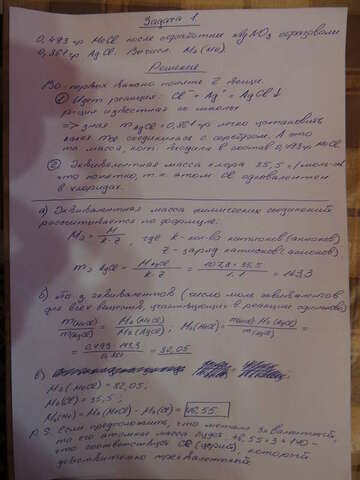 Задача 1.
0,493 гр MeCl после обработки AgNO3 образовали
0,861 гр AgCl. Вычисл. Mэ(Me)
Решение
Во-первых важно понять 2 вещи.
① Идет реакция: Cl⁻ + Ag⁺ = AgCl↓
=> зная m AgCl = 0,861 гр легко установить
масса Cl соединилась с серебром. А это
та масса, кот. входила в состав 0,493 гр MeCl
② Эквивалентная масса хлора 35,5 г/моль-экв
что понятно, т.к. атом Cl одновалентен
в хлоридах.
а) Эквивалентная масса химических соединений
рассчитывается по формуле:
Mэ = M / k·z, где k - кол-во катионов (анионов)
z - заряд катионов (анионов)
mэ AgCl = M AgCl / k·z = 107,8 + 35,5 / 1·1 = 143,3
б) По з. эквивалентов (число моль эквивалентов
для всех веществ, участвующих в реакции одинаково)
m(MeCl) / m(AgCl) = Mэ(MeCl) / Mэ(AgCl); Mэ(MeCl) = m(MeCl)·Mэ(AgCl) / m(AgCl) =
= 0,493·143,3 / 0,861 = 82,05
в)
Mэ(MeCl) = 82,05;
Mэ(Cl) = 35,5;
Mэ(Me) = Mэ(MeCl) - Mэ(Cl) = 46,55
P.S. Если предположить, что металл 3х валентный,
то его атомная масса будет 46,55 * 3 = 140 -
что соответствует Ce (церий), который
действительно трехвалентный.